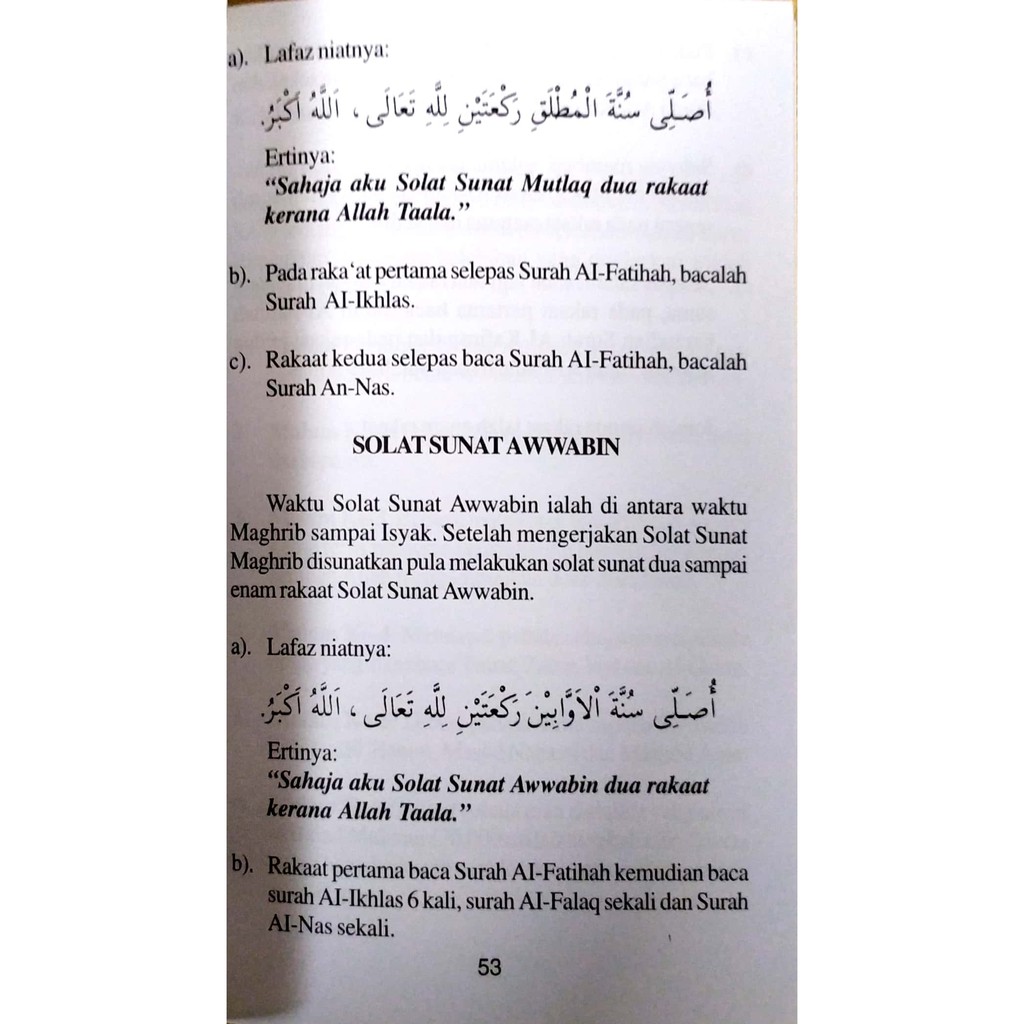 a). Lafaz niatnya:
أُصَلِّى سُنَّةَ الْمُطْلَقِ رَكْعَتَيْنِ لِلَّهِ تَعَالَى ، اَللَّهُ اَكْبَرُ.
Ertinya:
“Sahaja aku Solat Sunat Mutlaq dua rakaat
kerana Allah Taala.”
b). Pada raka‘at pertama selepas Surah AI-Fatihah, bacalah
Surah AI-Ikhlas.
c). Rakaat kedua selepas baca Surah AI-Fatihah, bacalah
Surah An-Nas.
SOLAT SUNAT AWWABIN
Waktu Solat Sunat Awwabin ialah di antara waktu
Maghrib sampai Isyak. Setelah mengerjakan Solat Sunat
Maghrib disunatkan pula melakukan solat sunat dua sampai
enam rakaat Solat Sunat Awwabin.
a). Lafaz niatnya:
أُصَلِّى سُنَّةَ الْاَوَّابِيْنَ رَكْعَتَيْنِ لِلَّهِ تَعَالَى ، اَللَّهُ اَكْبَرُ.
Ertinya:
“Sahaja aku Solat Sunat Awwabin dua rakaat
kerana Allah Taala.”
b). Rakaat pertama baca Surah AI-Fatihah kemudian baca
surah AI-Ikhlas 6 kali, surah AI-Falaq sekali dan Surah
AI-Nas sekali.
53